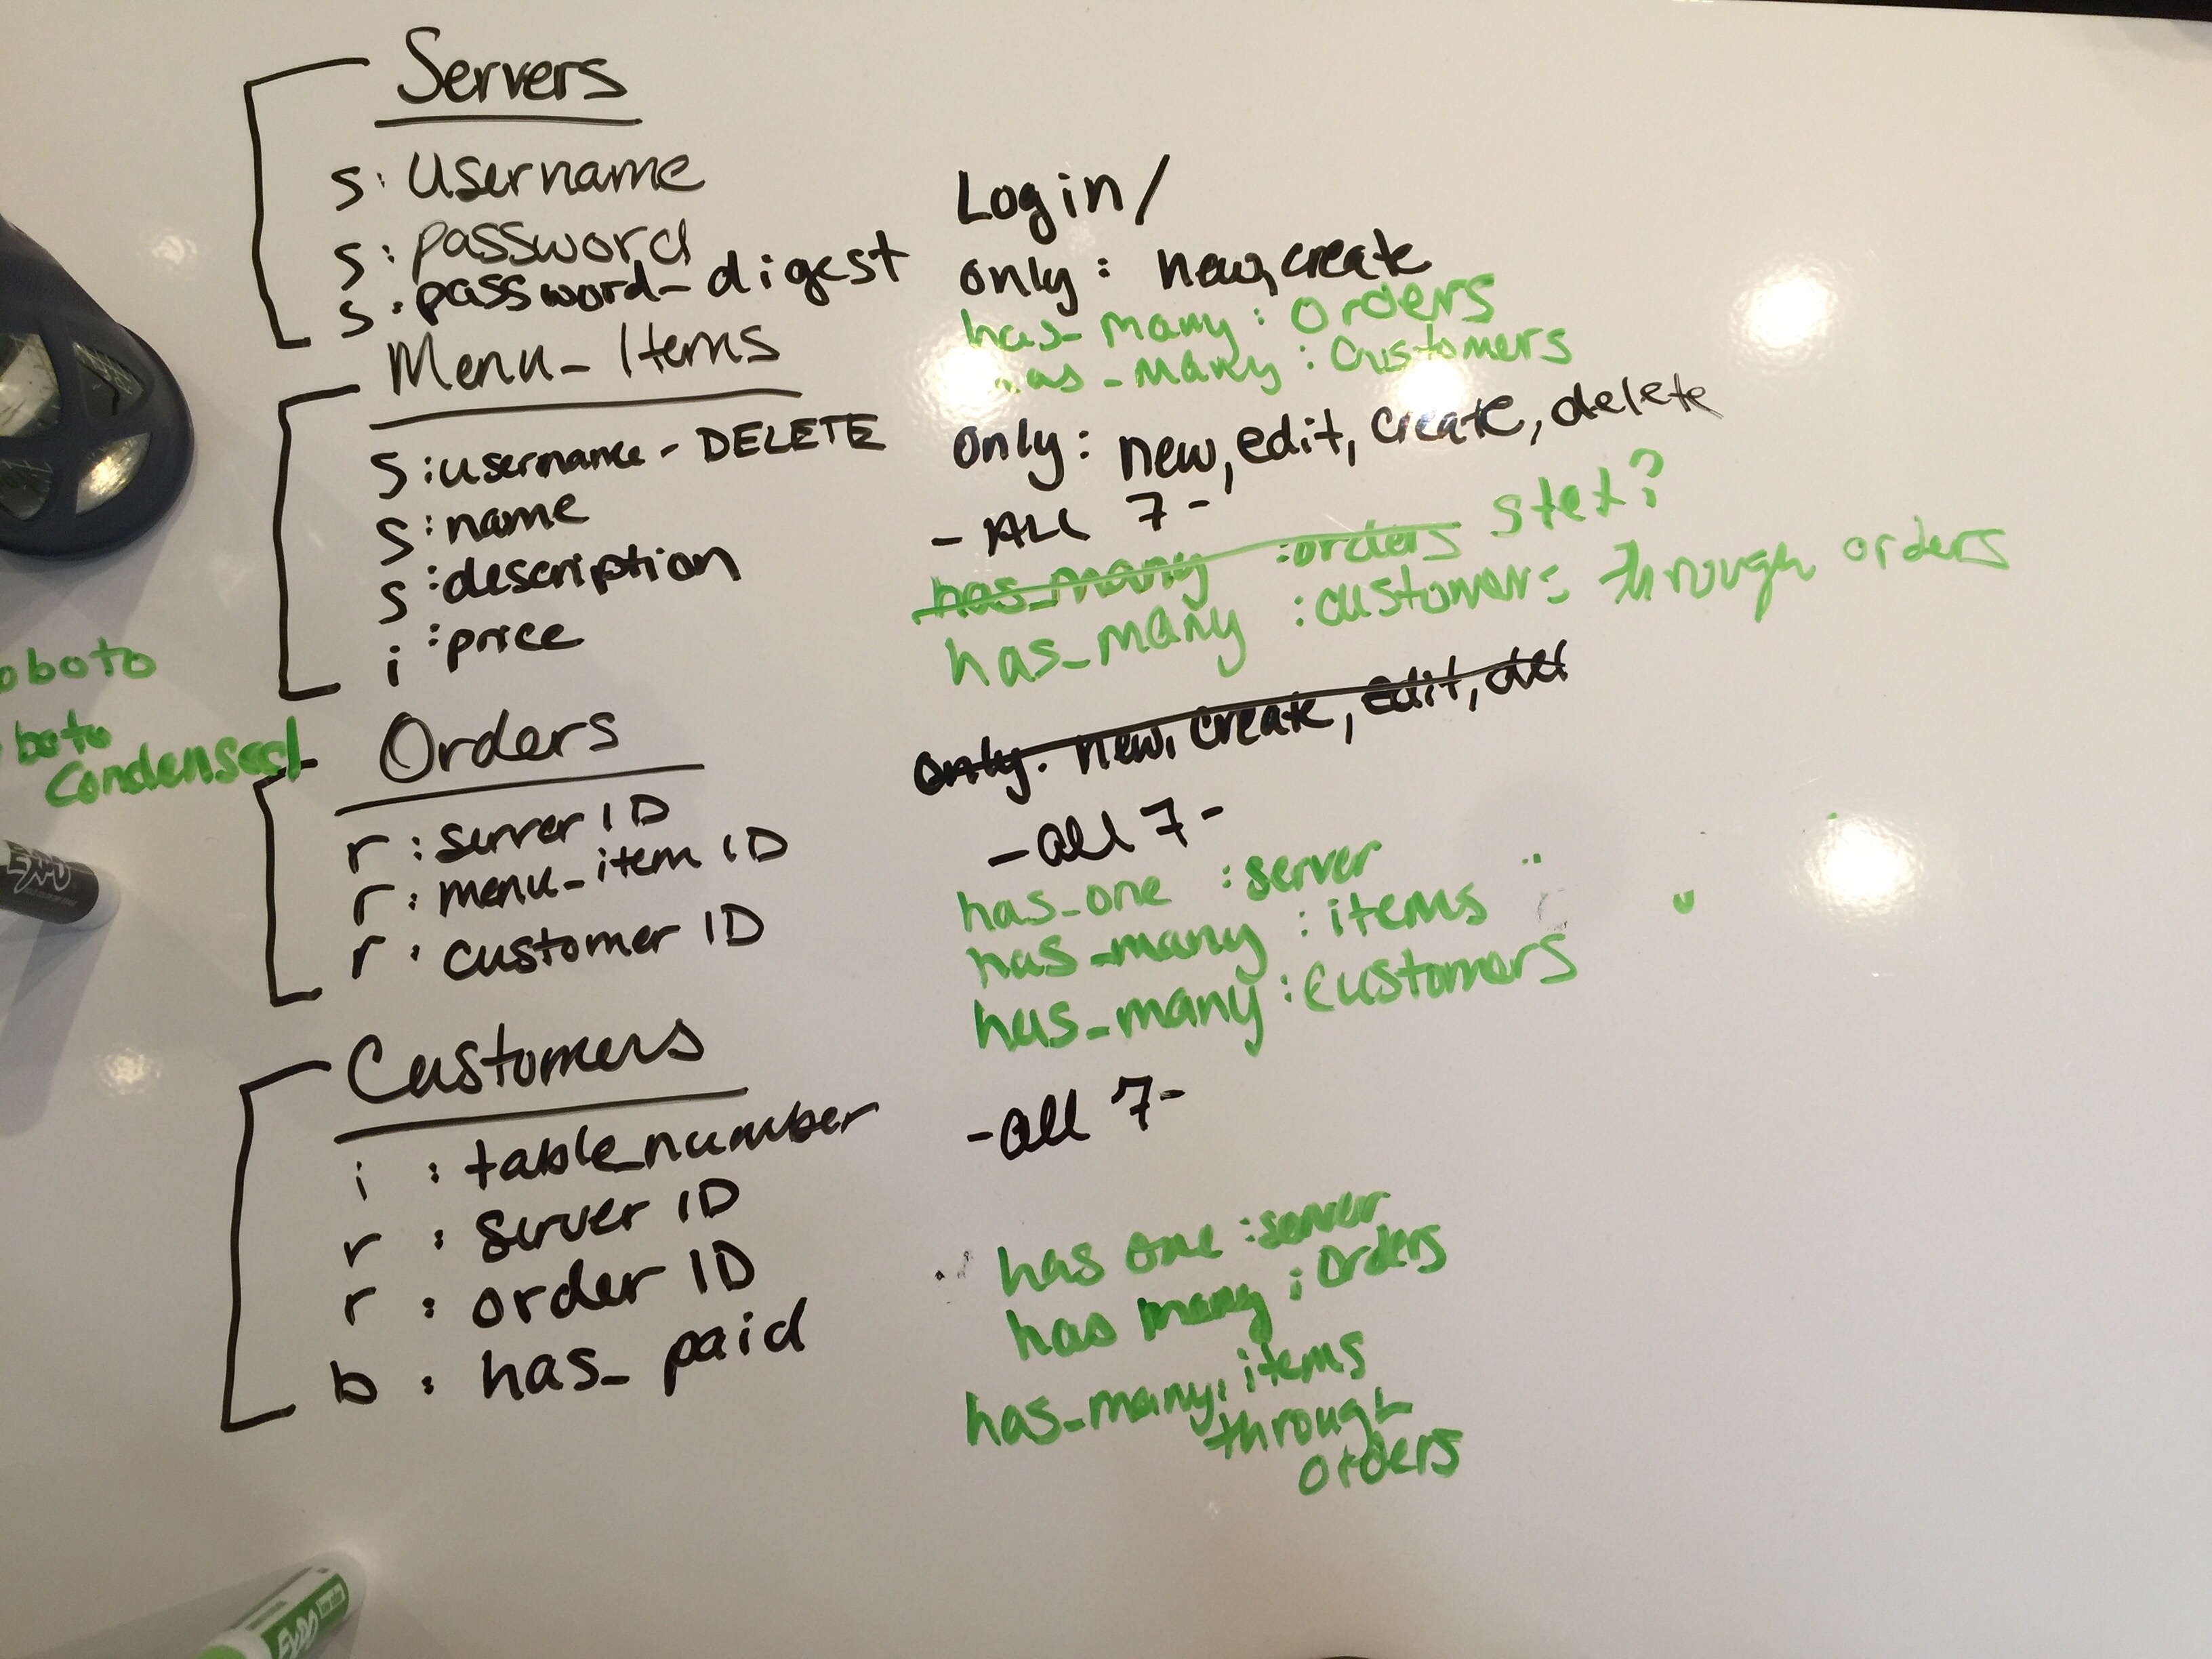 Servers
s: username
s: password
s: password_digest
Login/
only: new, create
has_many: Orders
has_many: Customers
Menu_Items
s: username - DELETE
s: name
s: description
i: price
only: new, edit, create, delete
- ALL 7 -
has_many :orders stet?
has_many :customers through orders
oboto
boto
Condensed
Orders
r: server ID
r: menu_item ID
r: customer ID
only: new, create, edit, del
- all 7 -
has_one :server
has_many :items
has_many :customers
Customers
i : table_number
r : server ID
r : order ID
b : has_paid
- all 7 -
has one :server
has many : Orders
has_many: items
through
orders
EXPO
EXPO